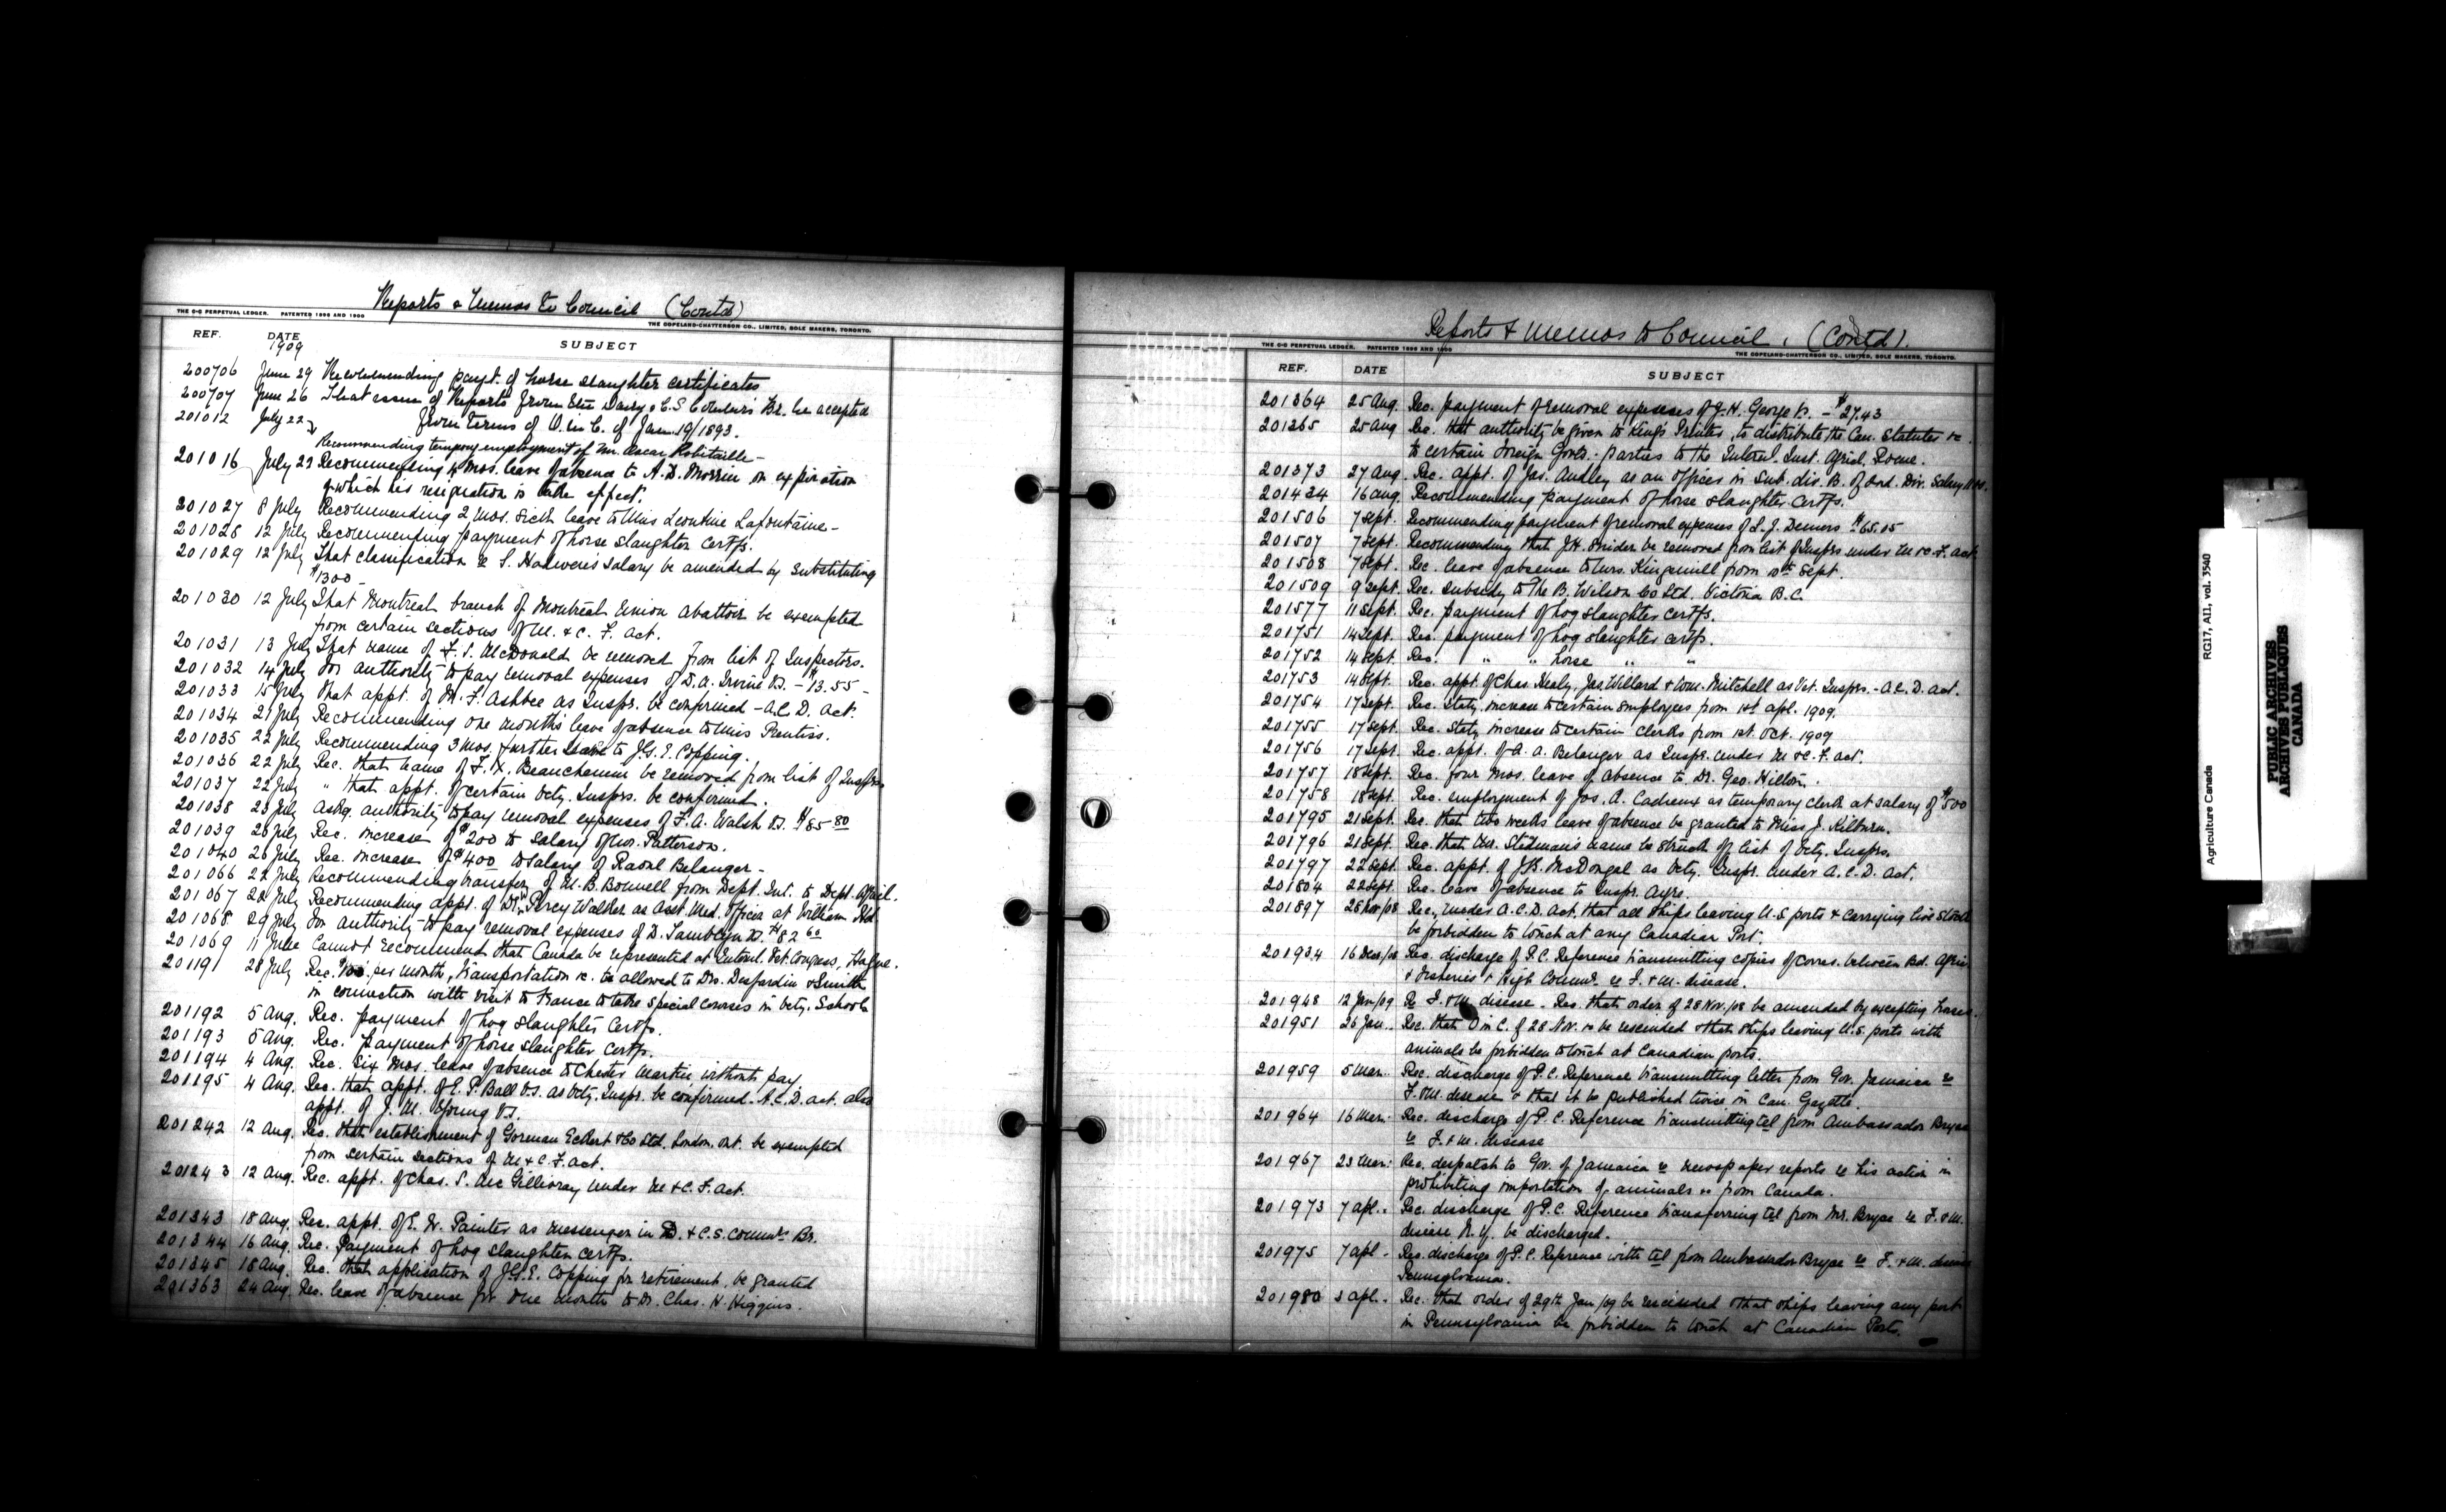 Reports & Memos to Council (Contd)
THE C-C PERPETUAL LEDGER. PATENTED 1896 AND 1900
THE COPELAND-CHATTERSON CO., LIMITED, SOLE MAKERS, TORONTO.
REF. DATE SUBJECT
1909
200706 June 29 Recommending payt. of horse slaughter certificates
200707 June 26 That issue of Reports from the Dairy & C.S. Comm'rs Br. be accepted
from terms of O. in C. of Jan. 19/1893.
201012 July 22 Recommending tempory employment of Mr. Oscar Robitaille -
201016 July 29 Recommending 4 mos. leave of absence to A.D. Morrin on expiration
of which his resignation is take effect.
201027 8 July Recommending 2 mos. sick leave to Miss Leontine Lafontaine -
201028 12 July Recommending payment of horse slaughter certfs.
201029 12 July That classification re S. salary be amended by substituting
$1300 -
201030 12 July That Montreal branch of Montreal Union Abattoir be exempted
from certain sections of M. & C. F. act.
201031 13 July That name of F. S. McDonald be removed from list of Inspectors.
201032 14 July For authority to pay removal expenses of D.A. Irvine V.S. - $13.55 -
201033 15 July That appt. of M. F. Ashbee as Inspr. be confirmed - A.C.D. act.
201034 21 July Recommending one month's leave of absence to Miss Prentiss.
201035 22 July Recommending 3 mos. further leave to J.G.E. Copping.
201036 22 July Rec. that name of F. X. Beauchemin be removed from list of Insprs
201037 22 July " that appt. of certain Vety. Insprs. be confirmed.
201038 23 July Askg. authority to pay removal expenses of F. A. Walsh V.S. $85.80
201039 26 July Rec. increase of $200 to salary of Patterson.
201040 26 July Rec. increase of $400 to salary of Raoul Belanger -
201066 22 July Recommending transfer of M. B. Bonnell from Dept. Int. to Dept. Agricl.
201067 22 July Recommending appt. of Dr. Percy Walker as Asst Med. Officer at William Hd.
201068 29 July For authority to pay removal expenses of D. Tamblyn V.S. $82.60
201069 11 June Cannot recommend that Canada be represented at Internl. Vet. Congress, Hague.
201191 28 July Rec. $100 per month, transportation &c. be allowed to Drs. Desjardin & Smith
in connection with visit to France to take special courses in Vety. Schools
201192 5 Aug. Rec. payment of hog slaughter certfs.
201193 5 Aug. Rec. payment of horse slaughter certfs.
201194 4 Aug. Rec. six mos. leave of absence to Chester Martin without pay
201195 4 Aug. Rec. that appt. of E. P. Ball V.S. as Vety. Inspr. be confirmed - A.C.D. act. also
appt. of J. M. Young V.S.
201242 12 Aug. Rec. that establishment of Gorman Eckert & Co Ltd. London. Ont. be exempted
from certain sections of M & C. F. act.
201243 12 Aug. Rec. appt. of Chas. S. McGillivray under M & C. F. act.
201343 18 Aug. Rec. appt. of E. W. Painter as messenger in D. & C.S. Comm'rs Br.
201344 16 Aug. Rec. Payment of hog slaughter certfs.
201345 18 Aug. Rec. that application of J.G.E. Copping for retirement, be granted
201363 24 Aug. Rec. leave of absence for one month to Dr. Chas. H. Higgins.
Reports & Memos to Council. (Contd).
THE C-C PERPETUAL LEDGER. PATENTED 1896 AND 1900
THE COPELAND-CHATTERSON CO., LIMITED, SOLE MAKERS, TORONTO.
REF. DATE SUBJECT
201364 25 Aug. Rec. payment of removal expenses of J. H. George V.S. - $27.43
201365 25 Aug Rec. that authority be given to King's Printer, to distribute the Can. Statutes &c
to certain Foreign Govts. parties to the Internl. Inst. Agricl. Rome.
201373 27 Aug Rec. appt. of Jas. Audley as an officer in Sub. div. B. of 3rd. Div. Salary
201434 16 Aug. Recommending payment of horse slaughter certfs.
201506 7 Sept. Recommending payment of removal expenses of L. J. Demers $65.15
201507 7 Sept. Recommending that J.H. Snider be removed from list of Insprs under M & C. F. act
201508 7 Sept. Rec. leave of absence to Mrs. Kingsmill from 10th Sept.
201509 9 Sept. Rec. subsidy to The B. Wilson Co Ltd. Victoria B.C.
201577 11 Sept. Rec. payment of hog slaughter certfs.
201751 14 Sept. Rec. payment of hog slaughter certfs.
201752 14 Sept. Rec. " " horse " "
201753 14 Sept. Rec. appt. of Chas. Healy, Jas. Willard & Wm. Mitchell as Vet. Insprs. - A.C.D. act.
201754 17 Sept. Rec. Staty. increase to certain employees from 1st Apl. 1909.
201755 17 Sept. Rec. Staty increase to certain clerks from 1st. Oct. 1909
201756 17 Sept. Rec. appt. of A. A. Belanger as Inspr. under M & C. F. act.
201757 18 Sept. Rec. four mos. leave of absence to Dr. Geo. Hilton.
201758 18 Sept. Rec. employment of Jos. A. Cadieux as temporary clerk at salary of $500
201795 21 Sept. Rec. that two weeks leave of absence be granted to Miss J. Kilburn.
201796 21 Sept. Rec. that Mr. Stedman's name be struck of list of Vety. Insprs.
201797 22 Sept. Rec. appt. of J.B. McDougal as Vety. Inspr. under A. C. D. Act.
201804 22 Sept. Rec. leave of absence to Inspr. Ayre.
201897 28 Nov/08 Rec., under A.C.D. Act. that all ships leaving U.S. ports & carrying live stock
be forbidden to touch at any Canadian Port.
201934 16 Dec/08 Rec. discharge of P.C. Reference transmitting copies of corres. between Bd. Agric
& Fisheries & High Commr. re F. & M. disease.
201948 12 Jan/09 Re F. & M. disease - Rec. that order of 28 Nov./08 be amended by excepting horses.
201951 26 Jan. Rec. that O in C. of 28 Nov. be rescinded & that ships leaving U.S. ports with
animals be forbidden to touch at Canadian ports.
201959 5 Mar. Rec. discharge of P.C. Reference transmitting letter from Gov. Jamaica re
F. & M. disease & that it be published twice in Can. Gazette.
201964 16 Mar. Rec. discharge of P. C. Reference transmitting tel from Ambassador Bryce
re F. & M. disease
201967 23 Mar. Rec. despatch to Gov. of Jamaica re newspaper reports re his action in
prohibiting importation of animals &c from Canada.
201973 7 Apl. Rec. discharge of P.C. Reference transferring tel from Mr. Bryce re F. & M.
disease N.Y. be discharged.
201975 7 Apl. Rec. discharge of P.C. Reference with tel from Ambassador Bryce re F. & M. disease
Pennsylvania.
201980 Apl. Rec. that order of 29th Jan/09 be rescinded & that ships leaving any port
in Pennsylvania be forbidden to touch at Canadian Ports.
Agriculture Canada RG17, A11, vol. 3540
PUBLIC ARCHIVES
ARCHIVES PUBLIQUES
CANADA